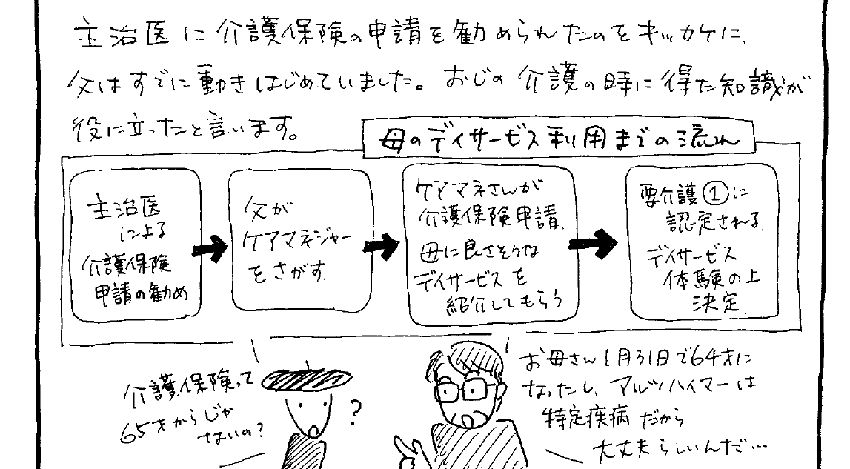 主治医に介護保険の申請を勧められたのをキッカケに、
父はすでに動きはじめていました。おじの介護の時に得た知識が
役に立ったと言います。
母のデイサービス利用までの流れ
主治医
による
介護保険
申請の勧め
父が
ケアマネジャー
をさがす
ケアマネさんが
介護保険申請、
母に良さそうな
デイサービスを
紹介してもらう
要介護①に
認定される
デイサービス
体験の上
決定
介護保険って
65才からじゃ
ないの?
?
お母さん1月31日で64才に
なったし、アルツハイマーは
特定疾病だから
大丈夫らしいんだ…